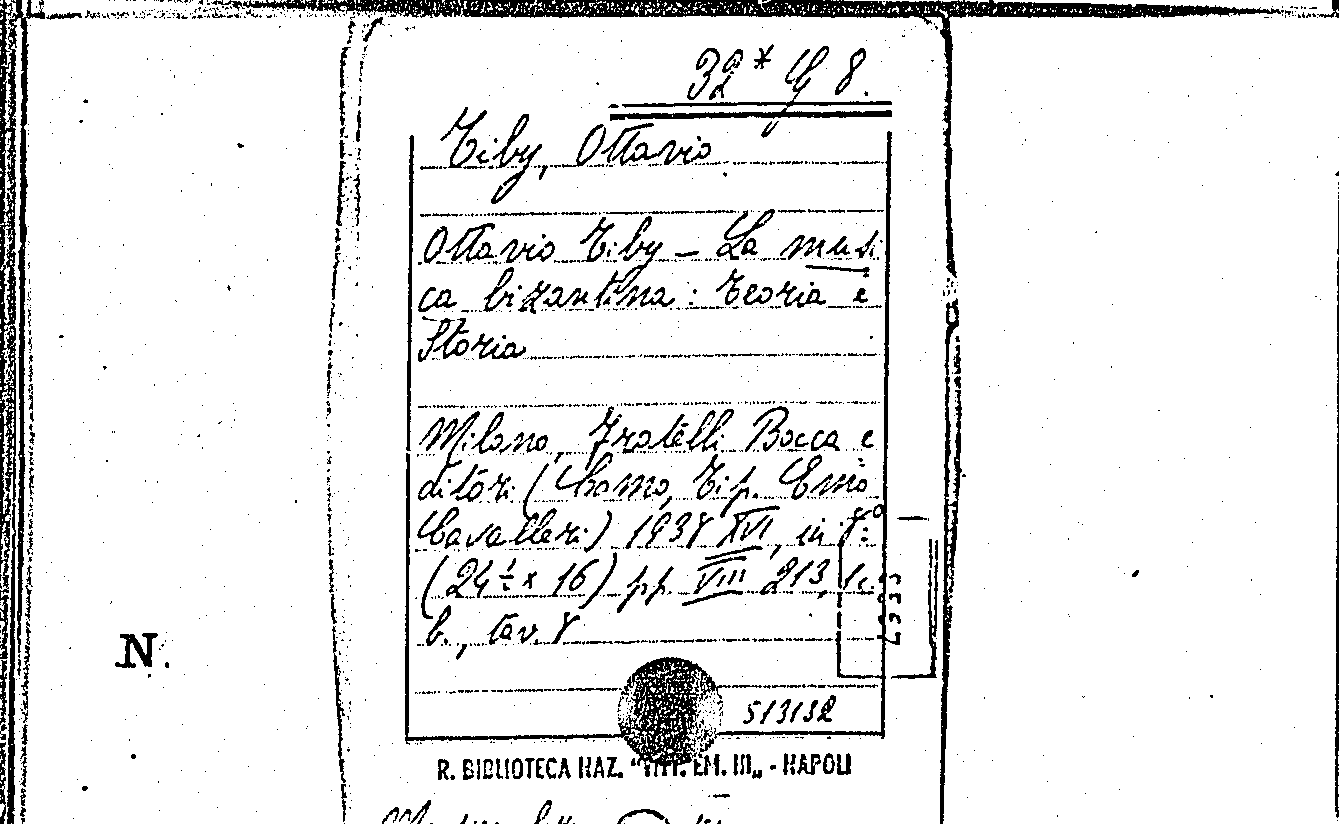 32* G 8.
Tiby, Ottavio
Ottavio Tiby – La musi
ca bizantina : Teoria e
Storia
Milano, Fratelli Bocca e
ditori (Como, Tip. Emo
Cavalleri) 1938 XVI, in 8:°
(24 ½ x 16) pp. VIII 213, 1 c.
b., tav. 8
513132
R. BIBLIOTECA NAZ. "VITT. EM. III„ - NAPOLI
N.